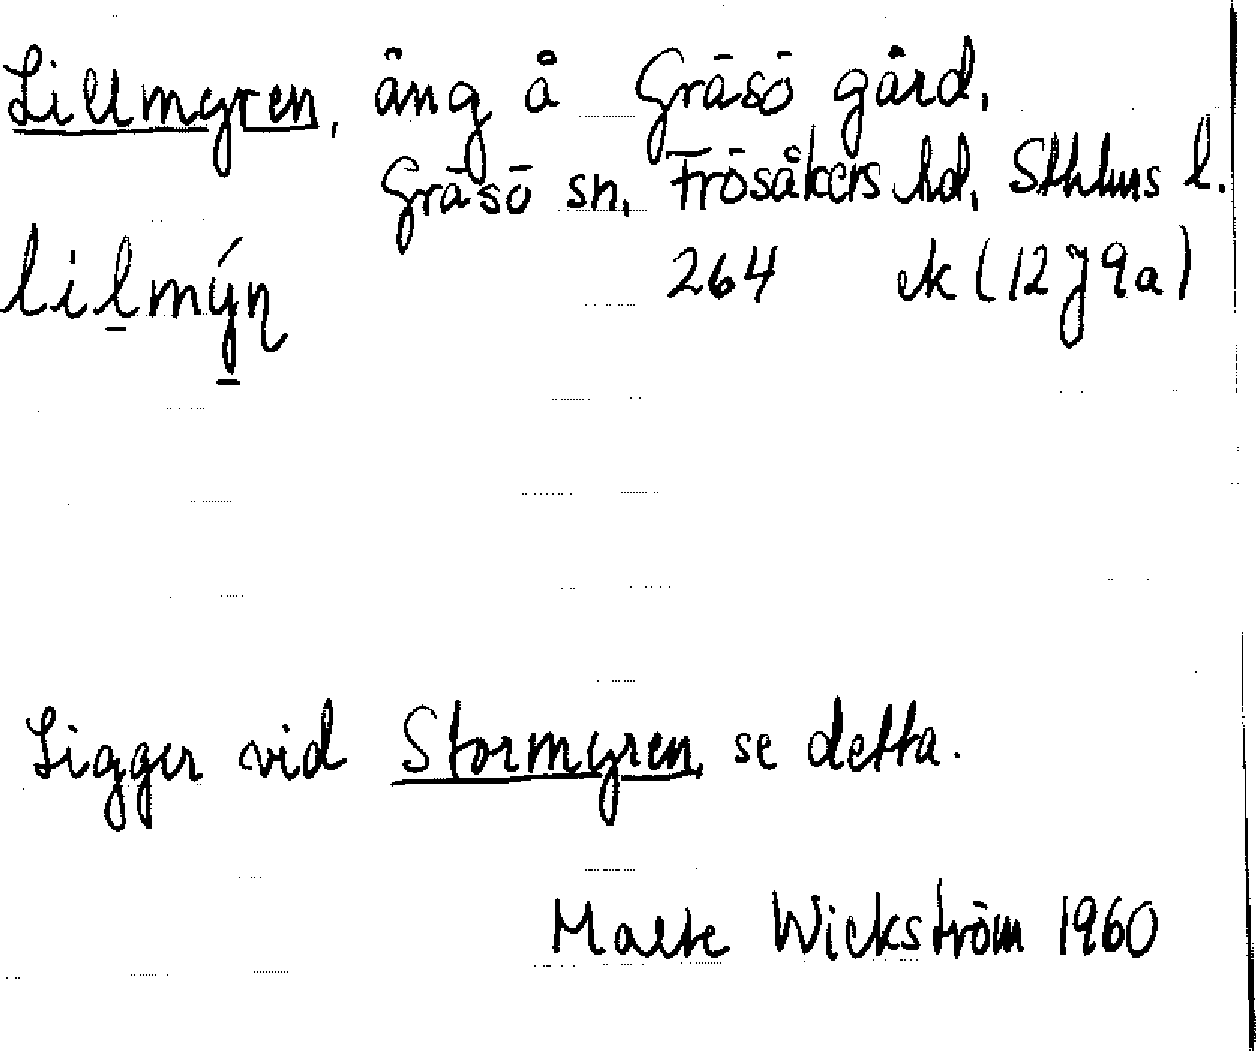 Lillmyren, äng å Gräsö gård,
Gräsö sn, Frösåkers hd, Sthlms l.
lilmýn 264 ek (12J9a)
Ligger vid Stormyren, se detta.
Malte Wickström 1960